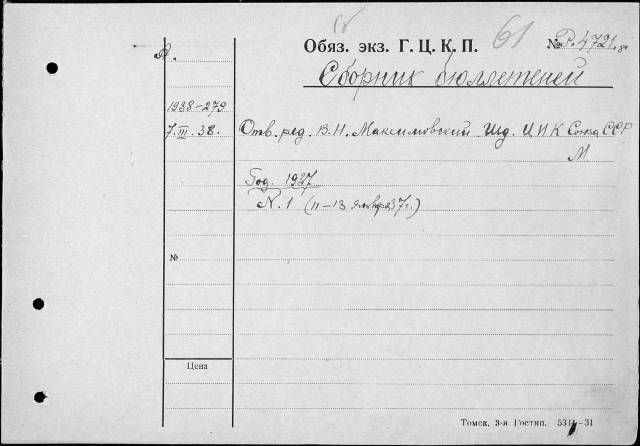 Сб
Обяз. экз. Г. Ц. К. П. 61 № Р. 4721.8°
Д.
Сборник бюллетеней
1938-279
7.III.38. Отв. ред. В. Н. Максимовский Изд. ЦИК Союза ССР
М
Год. 1937
N. 1 (11-13 января 37г.)
№
Цена
Томск, 3-я Гостип. 5311-31